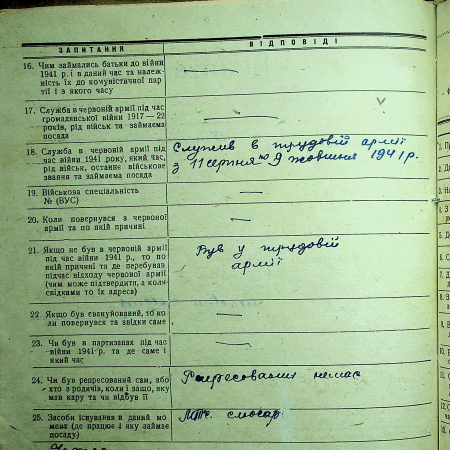 ЗАПИТАННЯ ВІДПОВІДІ
16. Чим займались батьки до війни
1941 р. і в даний час та належ-
ність їх до комуністичної пар-
тії і з якого часу
17. Служба в червоній армії під час
громадянської війни 1917 — 22
років, рід військ та займаєма
посада
18. Служба в червоній армії під
час війни 1941 року, який час,
рід військ, останнє військове
звання та займаєма посада
Служив в трудовій армії
з 11 серпня по 9 жовтня 1941 р.
19. Військова спеціальність
№ (ВУС)
20. Коли повернувся з червоної
армії та по якій причині
21. Якщо не був в червоній армії
під час війни 1941 р., то по
якій причині та де перебував
під час відходу червоної армії
(чим може підтвердити, а коли
свідками то їх адреса)
Був у трудовій
армії
22. Якщо був евакуйований, то ко-
ли повернувся та звідки саме
23. Чи був в партизанах під час
війни 1941 р. та де саме і
який час
24. Чи був репресований сам, або
хто з родичів, коли і защо, яку
мав кару та чи відбув її
Репресованих немає
25. Засоби існування в даний мо-
мент (де працює і яку займає
посаду)
слюсар